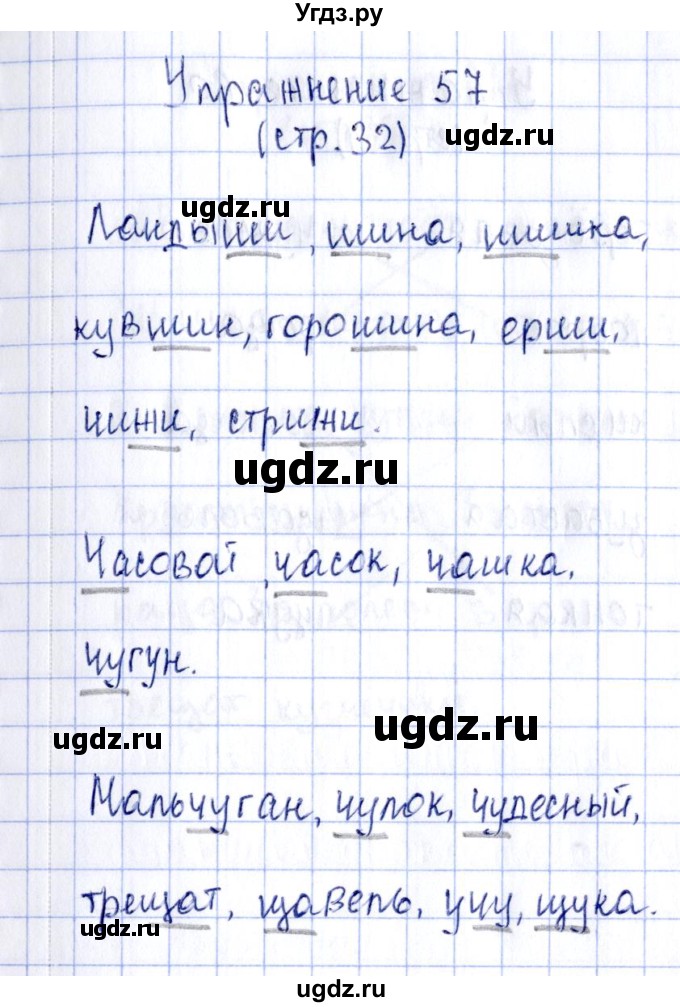 Угдз.ру
Упражнение 57
(стр. 32)
ugdz.ru
Ландыши, шина, шишка,
кувшин, горошина, ерши,
чижи, стрижи.
ugdz.ru
Часовой, часок, чашка,
чугун.
ugdz.ru
ugdz.ru
Мальчуган, чулок, чудесный,
трещат, щавель, учу, щука.
ugdz.ru
ugdz.ru